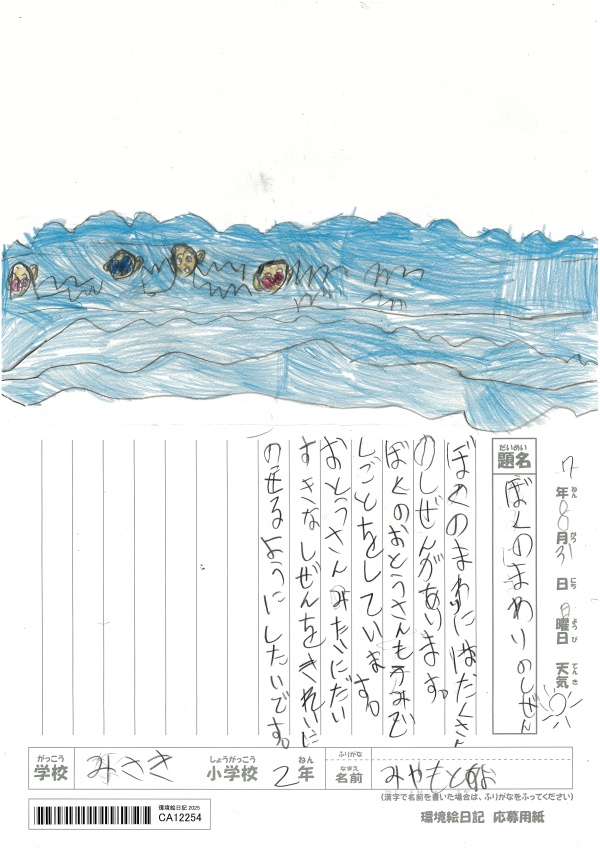 7年ねん8月がつ31日にち日曜日ようび天気てんき
題名だいめい
ぼくのまわりのしぜん
ぼくのまわりにはたくさん
のしぜんがあります。
ぼくのおとうさんもうみで
しごとをしています。
おとうさんみたいにだい
すきなしぜんをきれいに
のせるようにしたいです。
がっこう
学校
みさき
しょうがっこう
小学校
2
ねん
年
ふりがな
なまえ
名前
みやもと
(漢字で名前を書いた場合は、ふりがなをふってください)
環境絵日記 2025
CA12254
環境絵日記 応募用紙